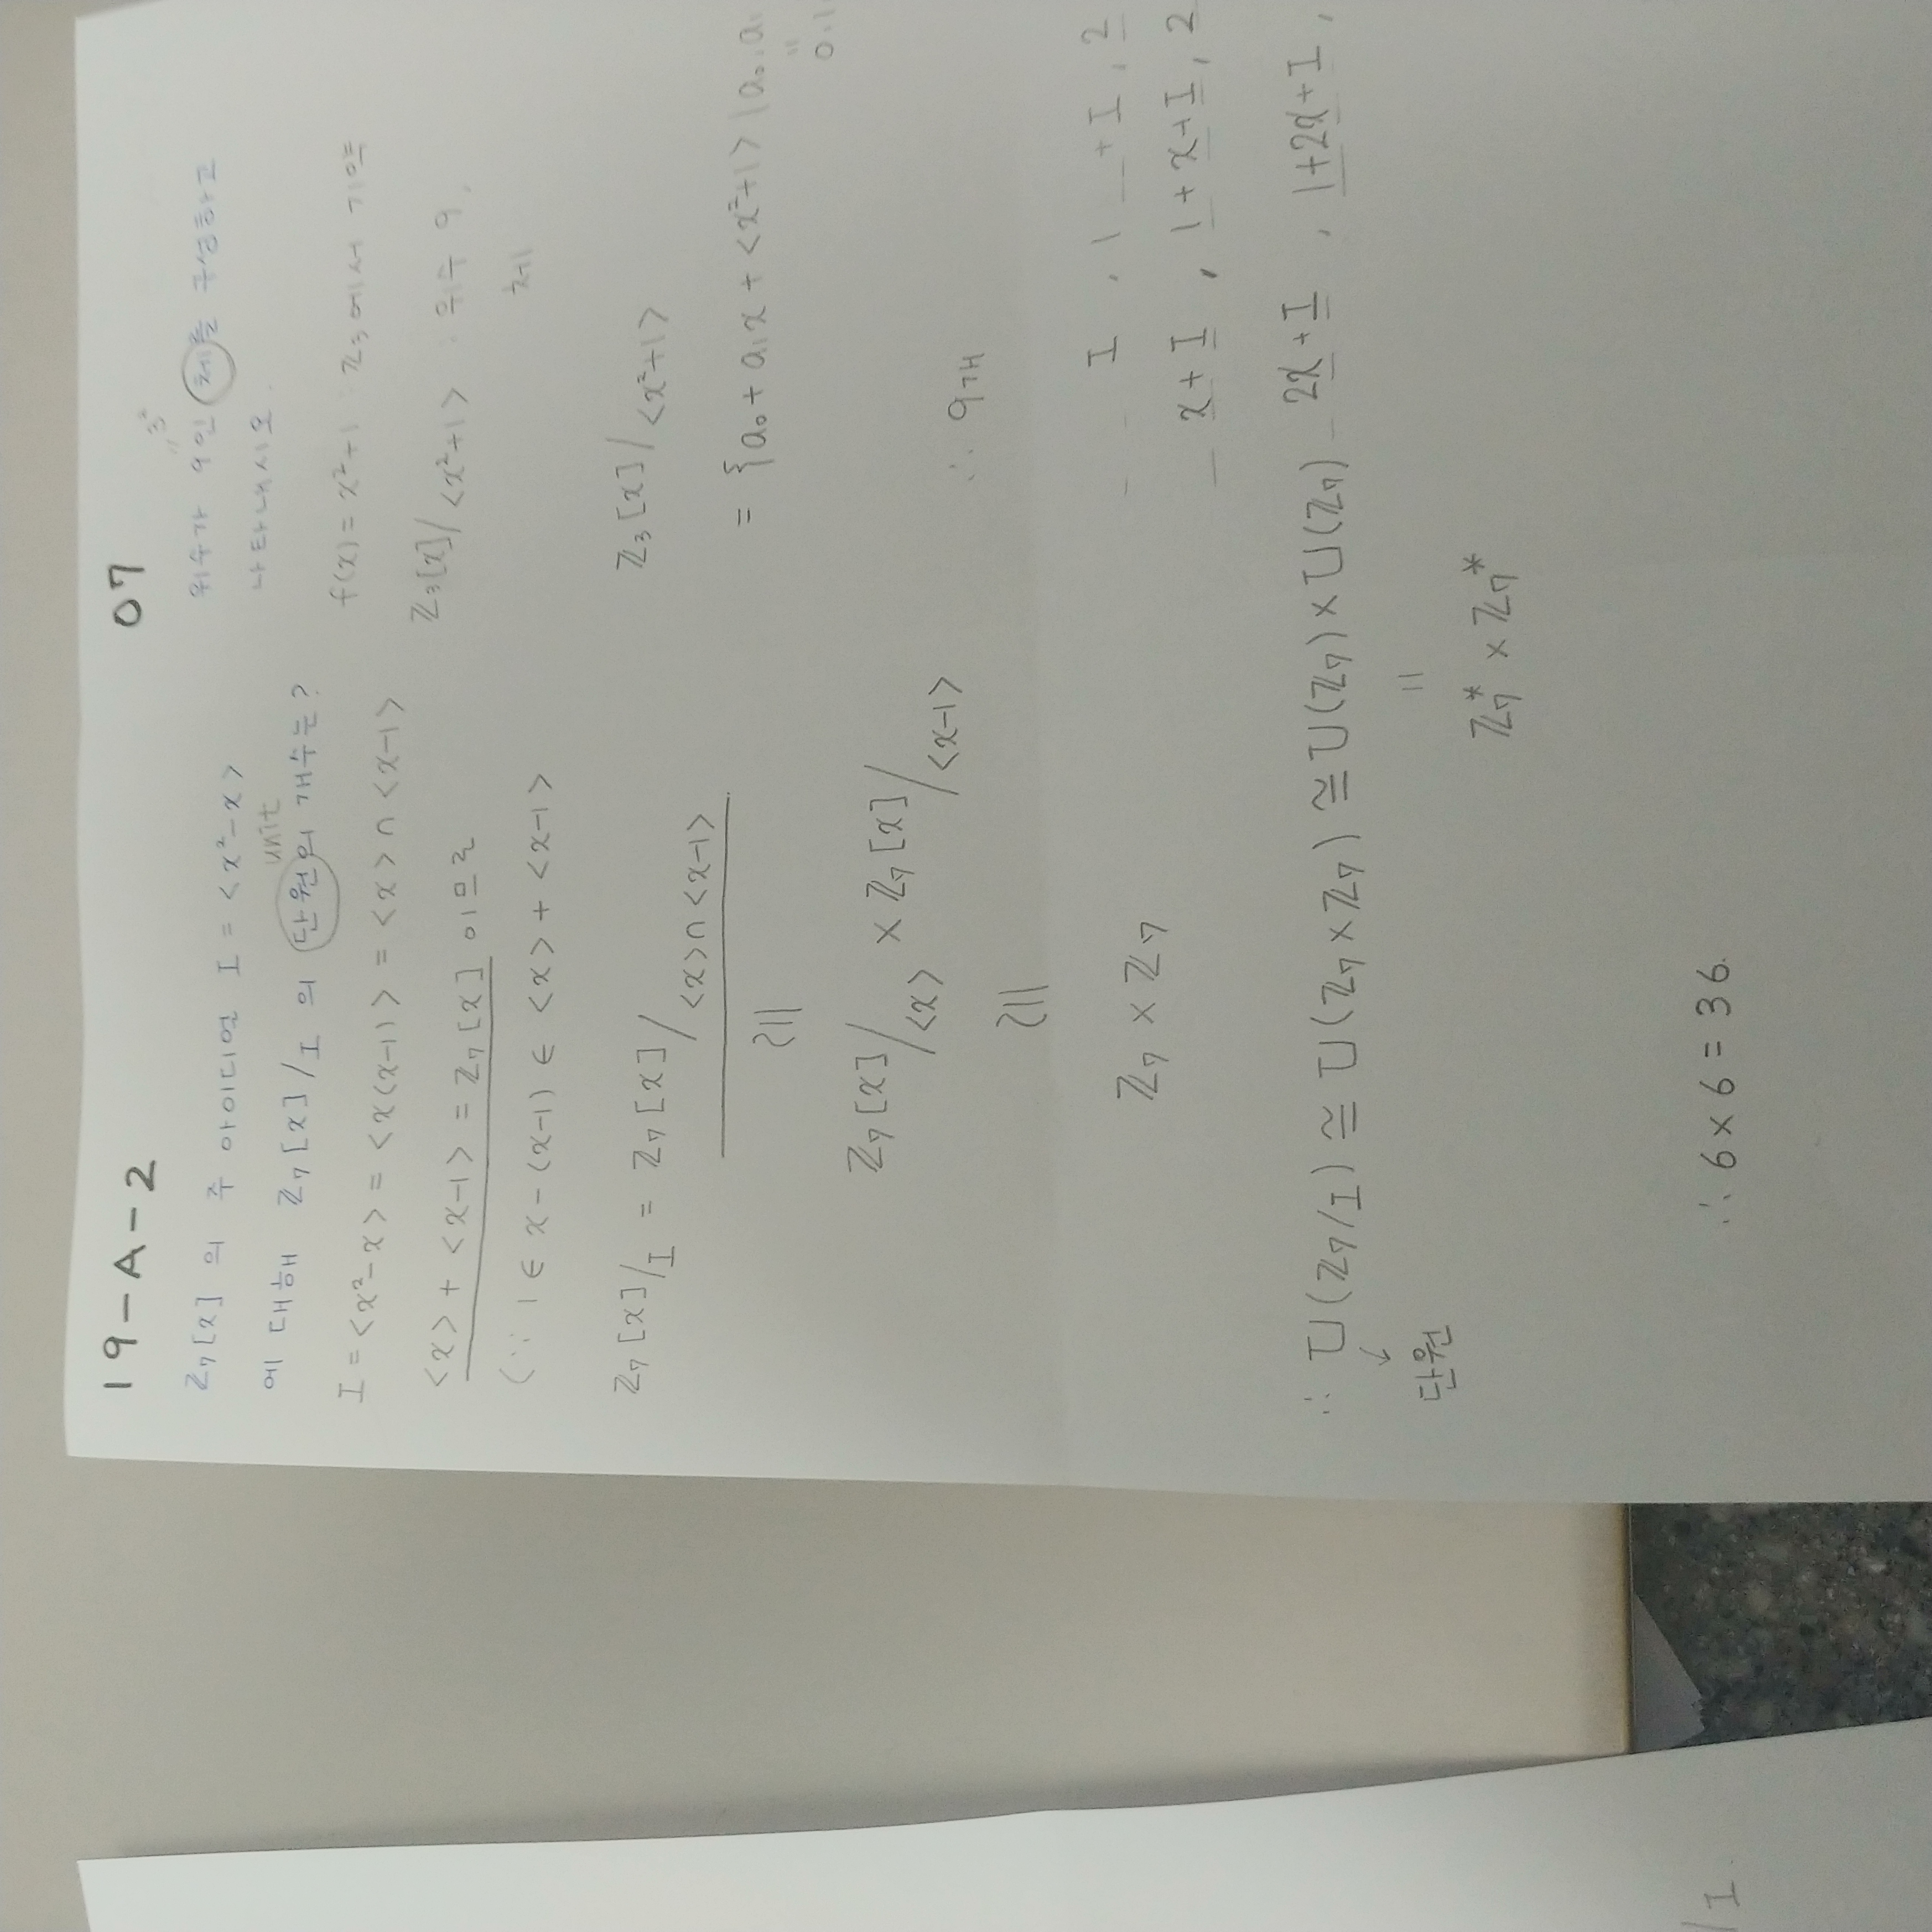 19-A-2
ℤ₇[x] 의 주 아이디얼 I = <x²-x>
에 대해 ℤ₇[x]/I 의 단원의 개수는?
unit
I = <x²-x> = <x(x-1)> = <x> ∩ <x-1>
<x> + <x-1> = ℤ₇[x] 이므로
(∵ 1 ∈ x-(x-1) ∈ <x> + <x-1>
ℤ₇[x]/I = ℤ₇[x]/<x>∩<x-1>
≅
ℤ₇[x]/<x> × ℤ₇[x]/<x-1>
≅
ℤ₇ × ℤ₇
∴ U(ℤ₇/I) ≅ U(ℤ₇×ℤ₇) ≅ U(ℤ₇)×U(ℤ₇)
↓
단원
=
ℤ₇* × ℤ₇*
∴ 6×6 = 36.
07
= 3²
위수가 9인 체를 구성하고
나타내시오.
f(x) = x²+1 : ℤ₃에서 기약
ℤ₃[x]/<x²+1> : 위수 9,
체
ℤ₃[x]/<x²+1>
= {a₀ + a₁x + <x²+1> | a₀, a₁
=
0,1
∴ 9개
I , 1 + I , 2
x + I , 1 + x + I , 2
2x + I , 1+2x+I ,
/I.